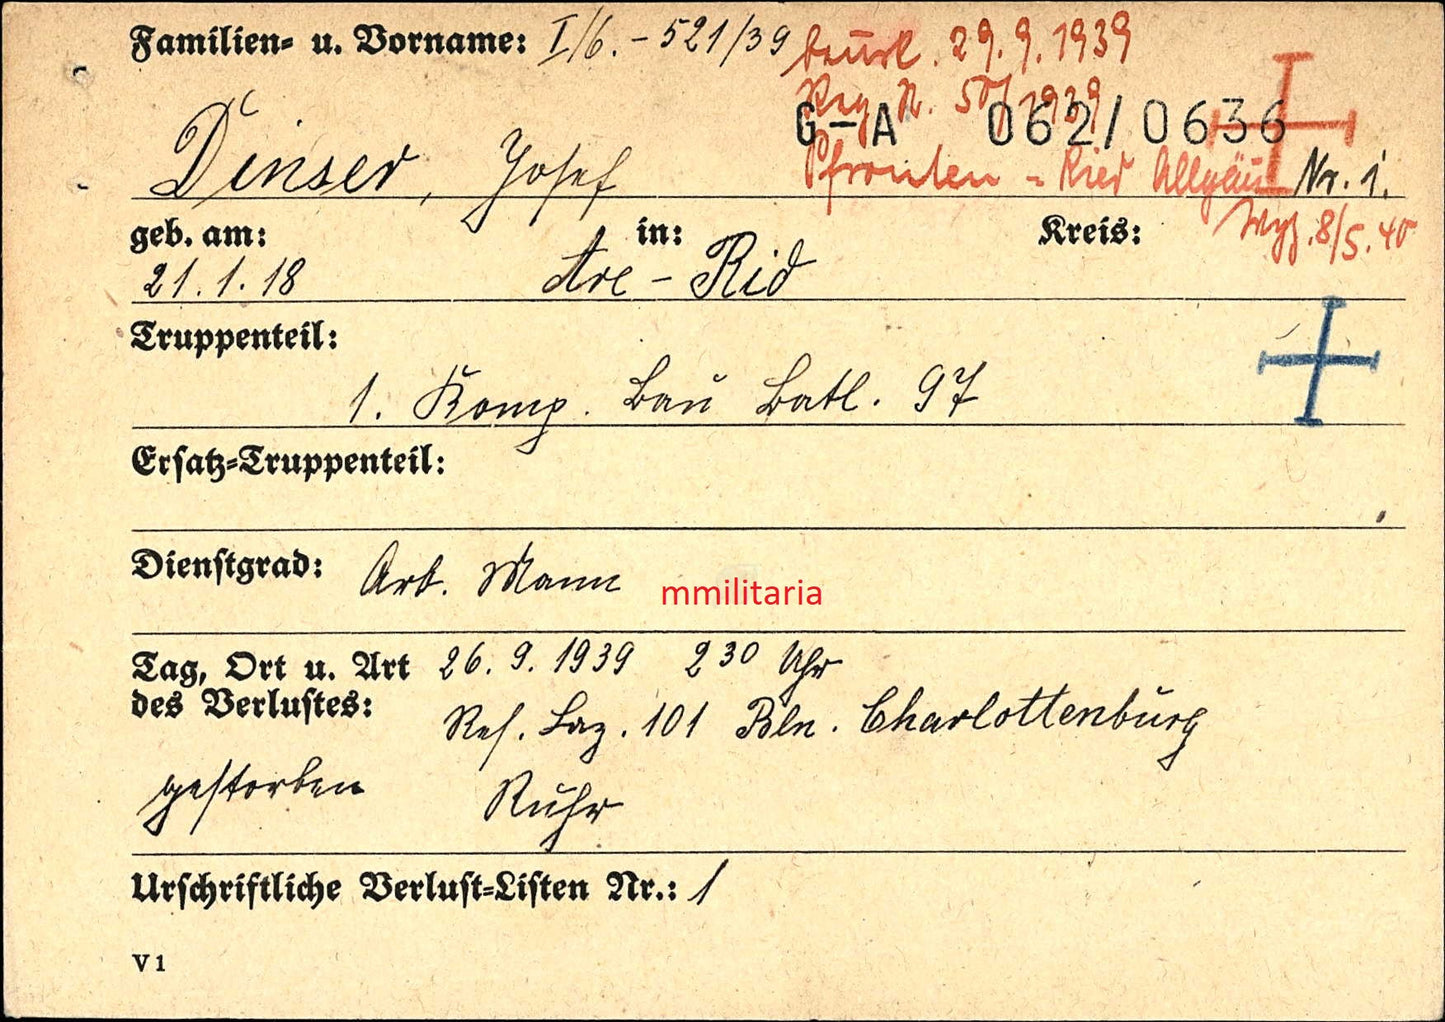 Familien- u. Vorname: I/6. - 521/39 beurk. 29.9.1939
Reg N. 1939
G-A 062/0636
Dinser, Josef Pfronten - Ried Allgäu Nr. 1.
geb. am: in: Kreis: 8/5.40
21.1.18 - Rid
Truppenteil:
1. Komp. Bau Batl. 97
Ersatz-Truppenteil:
Dienstgrad: Arb. Mann
mmilitaria
Tag, Ort u. Art 26.9.1939 2 30 Uhr
des Verlustes:
Res. Laz. 101 Bln. Charlottenburg
gestorben Ruhr
Urschriftliche Verlust-Listen Nr.: 1
V 1